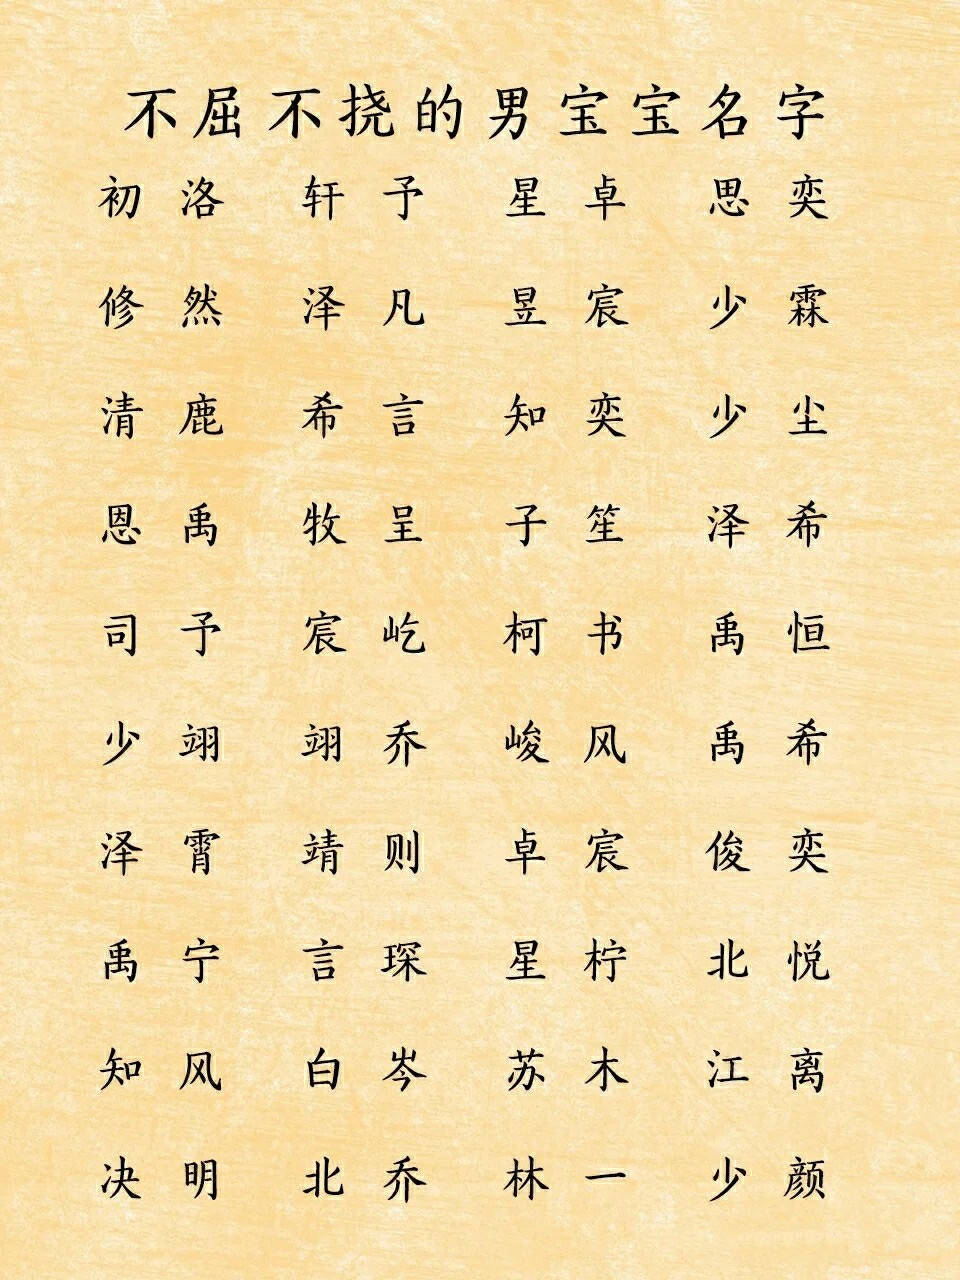 不屈不挠的男宝宝名字
初洛 轩予 星卓 思奕
修然 泽凡 昱宸 少霖
清鹿 希言 知奕 少尘
恩禹 牧呈 子笙 泽希
司予 宸屹 柯书 禹恒
少翊 翊乔 峻风 禹希
泽霄 靖则 卓宸 俊奕
禹宁 言琛 星柠 北悦
知风 白岑 苏木 江离
决明 北乔 林一 少颜